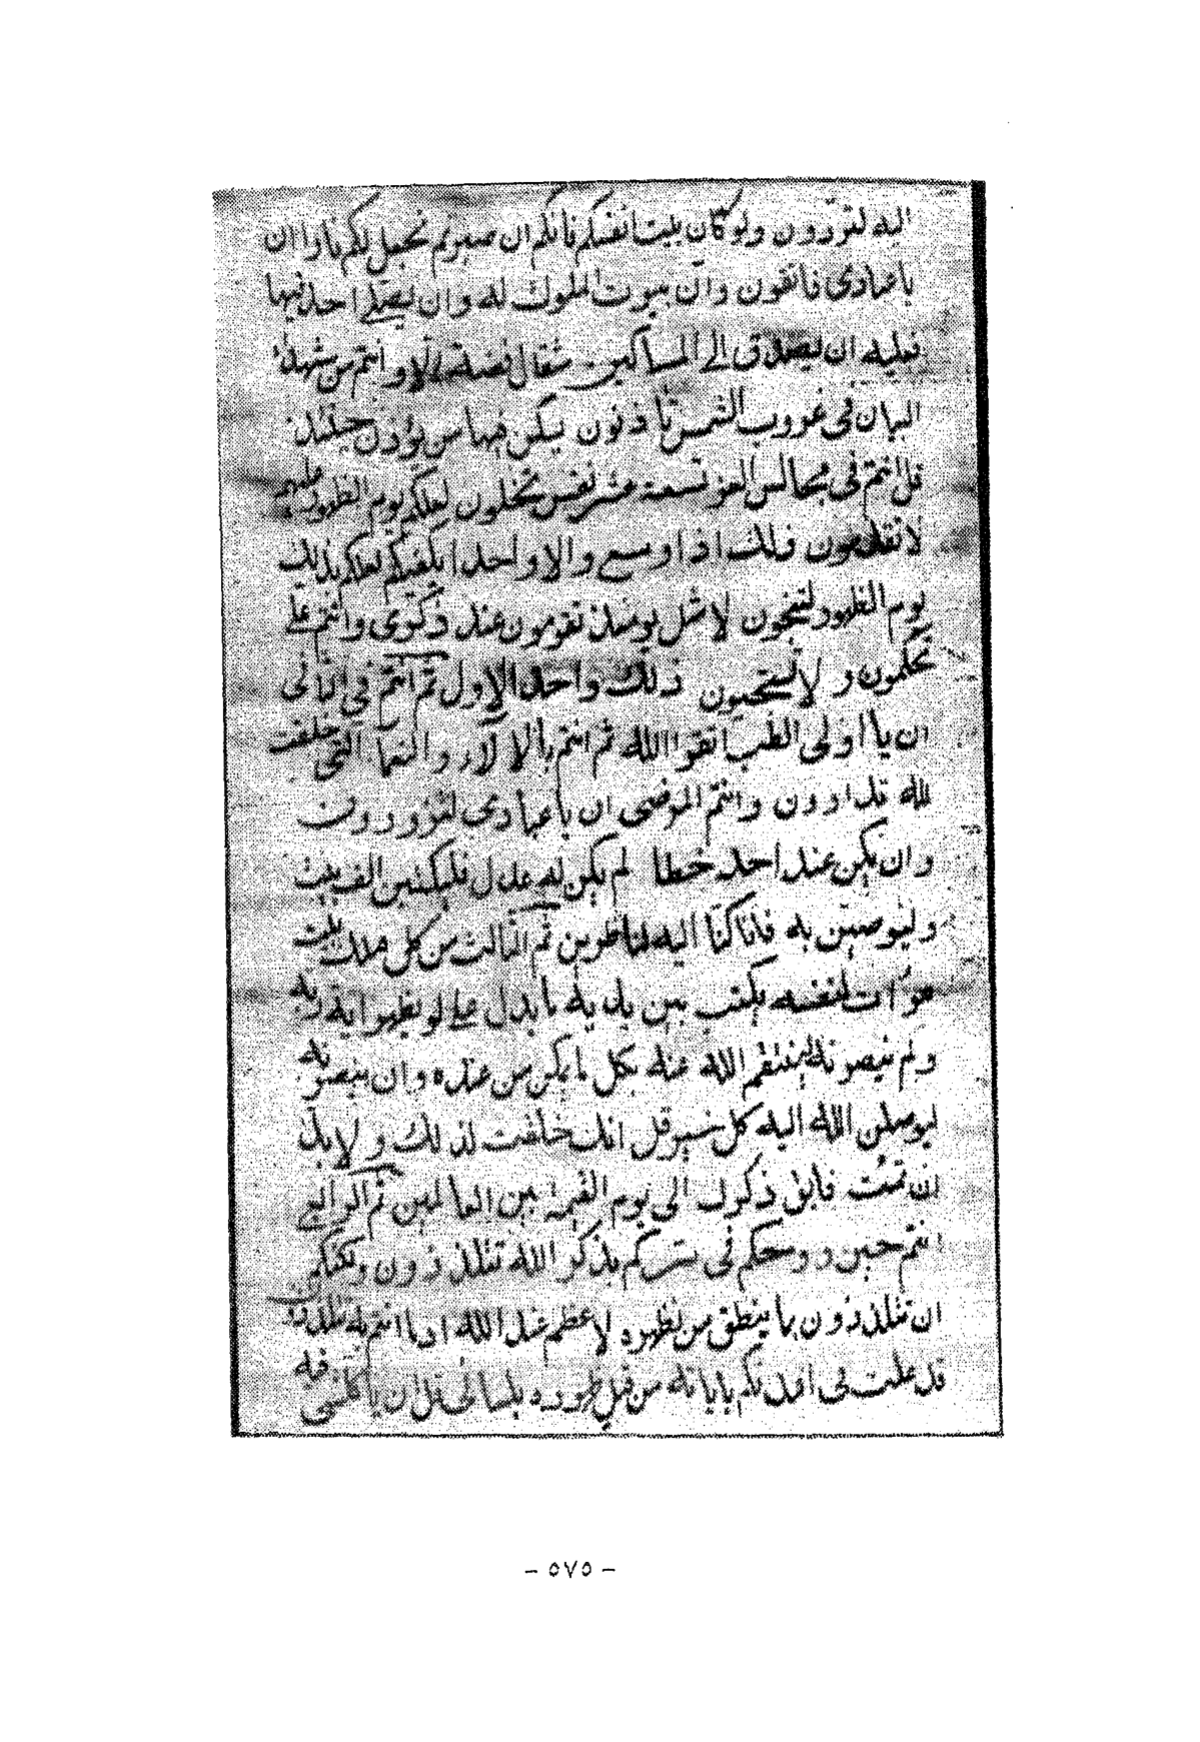 اليه لتردون ولو كان بيت انفسكم فانكم ان صبرتم نجعل لكم نارا ان
يا عبادى فاتقون وان بيوت الملوك له وان يصلى احد فيها
فعليه ان يصدق الى المساكين مثقال فضة الا وانتم من شهداء
البيان فى غروب الشمس تأذنون يكن فيها من يؤذن حينئذ
قل انتم فى مجالس العز تسعة عشر نفس تخلون لعلكم يوم الظهور عليهم
لا تقدمون ذلك اذا وسع والا واحدا يكفيكم لعلكم بذلك
يوم الظهور لتنجون لا مثل يومئذ تقومون عند ذكرى وانتم على
تحكمون ولا تستحيون ذلك واحد الاول ثم انتم فى الثانى
ان يا اولى الطب اتقوا الله ثم انتم بالالاء والنعماء التى خلقت
لله تداوون وانتم المرضى ان يا عبادي لتزورون
وان يكن عند احد خطا لم يكن له عدل فليكتبن الف بيت
وليوصين به فانا كنا اليه لناظرين ثم الثالث من كل ملك بيت
مرآت لنفسه يكتب بين يديه ما يدل على لو يظهر اية ربه
ولم ينصرنه لينتقم الله عنه بكل ما يكن من عنده وان ينصرنه
ليوصلن الله اليه كل خير قل انك خلقت لذلك ولا بد
ان تمت فابق ذكرك الى يوم القيمة بين العالمين ثم الرابع
انتم حين روحكم فى سركم بذكر الله تتلذذون ولكنكم
ان تتلذذون بما ينطق من نظهره لاعظم عند الله اذا انتم به تتلذذون
قد علمت بى افئدتكم باياته من قبل ظهوره بلسانى قل ان يا كلشى فيه
- ٥٧٥ -